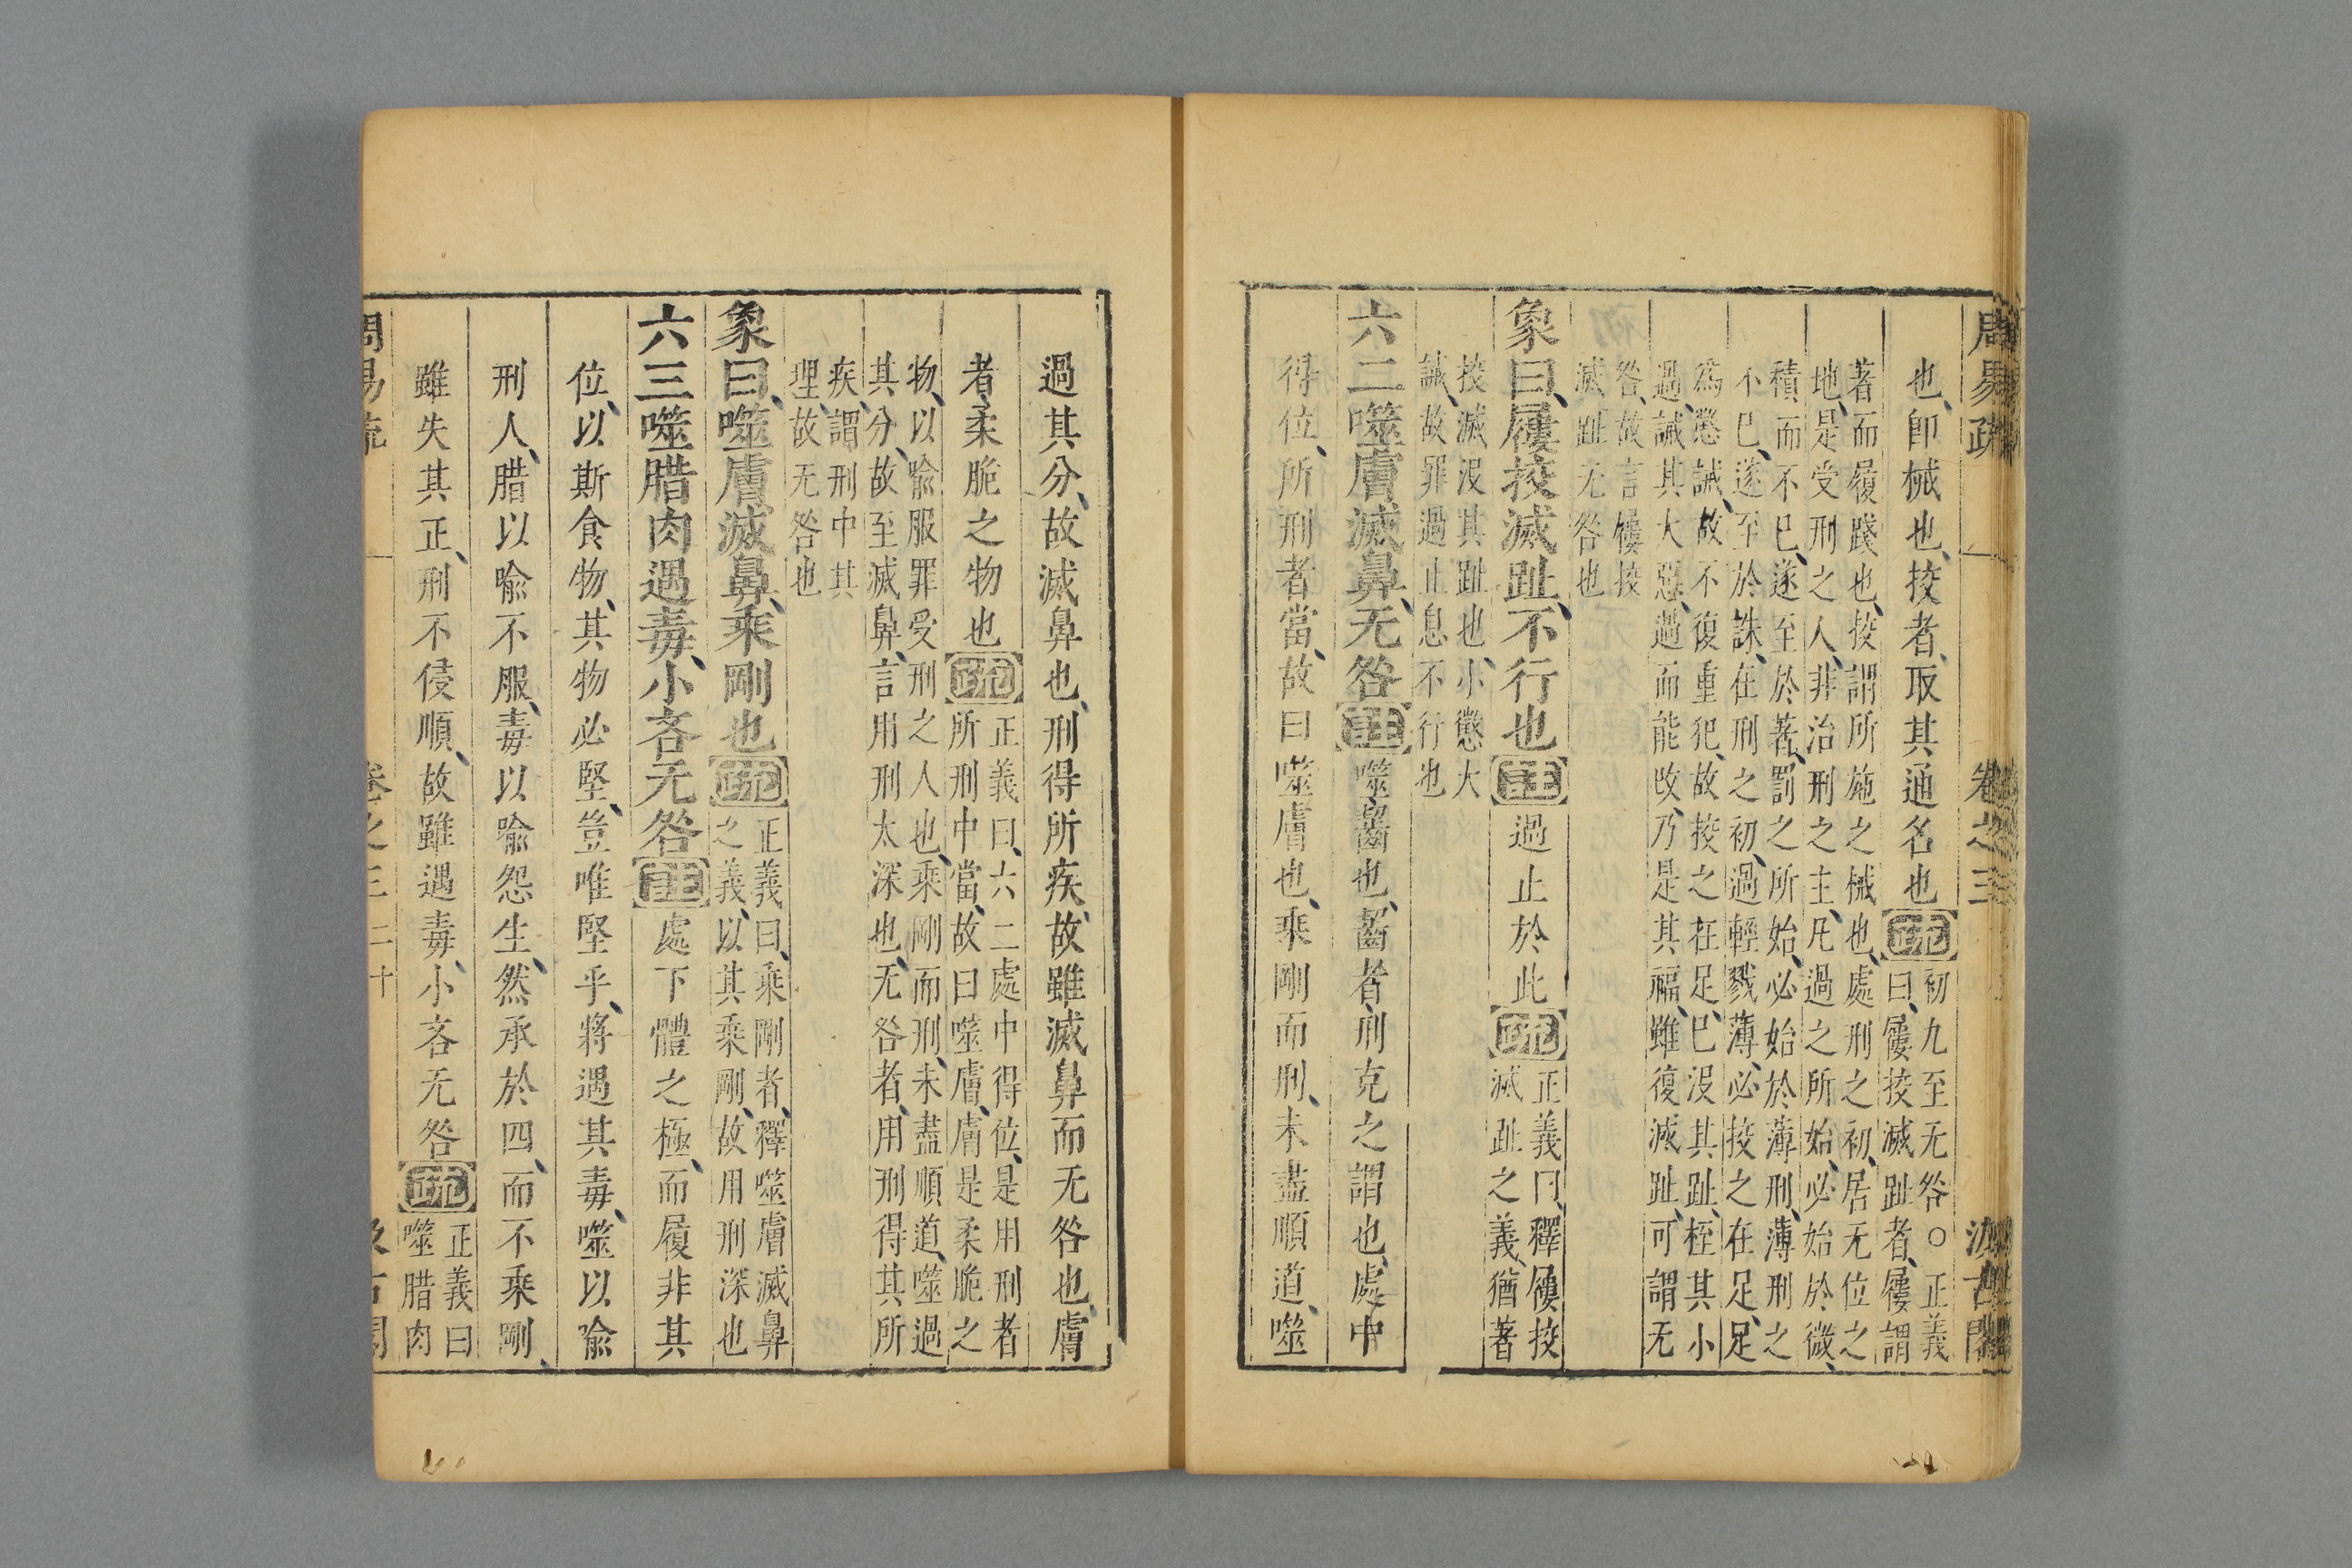 周易疏 卷之三 汲古閣
也、即械也、挍者、取其通名也疏初九至无咎○正義
曰、屨挍滅趾者、屨謂
著而履踐也、挍謂所施之械也、處刑之初、居无位之
地、是受刑之人、非治刑之主、凡過之所始、必始於微、
積而不已、遂至於著、罰之所始、必始於薄刑、薄刑之
不已、遂至於誅、在刑之初、過輕戮薄、必挍之在足、足
爲懲誡、故不復重犯、故挍之在足、已没其趾、桎其小
過、誡其大惡、過而能改、乃是其福、雖復滅趾、可謂无
咎、故言屨挍
滅趾无咎也
象曰、屨挍滅趾、不行也註過止於此疏正義曰、釋屨挍
滅趾之義、猶著
挍滅没其趾也、小懲大
誡、故罪過止息不行也
六二噬膚滅鼻、无咎註噬、齧也、齧者、刑克之謂也、處中
得位、所刑者當、故曰噬膚也、乘剛而刑、未盡順道、噬
過其分、故滅鼻也、刑得所疾、故雖滅鼻而无咎也、膚
者、柔脆之物也疏正義曰、六二處中得位、是用刑者
所刑中當、故曰噬膚、膚是柔脆之
物、以喻服罪受刑之人也、乘剛而刑、未盡順道、噬過
其分、故至滅鼻、言用刑太深也、无咎者、用刑得其所
疾、謂刑中其
理、故无咎也
象曰、噬膚滅鼻、乘剛也疏正義曰、乘剛者、釋噬膚滅鼻
之義、以其乘剛、故用刑深也
六三噬腊肉遇毒、小吝无咎註處下體之極、而履非其
位、以斯食物、其物必堅、豈唯堅乎、將遇其毒、噬以喻
刑人、腊以喻不服、毒以喻怨生、然承於四、而不乘剛、
雖失其正、刑不侵順、故雖遇毒、小吝无咎疏正義曰
噬腊肉
周易疏 卷之三 二十 汲古閣